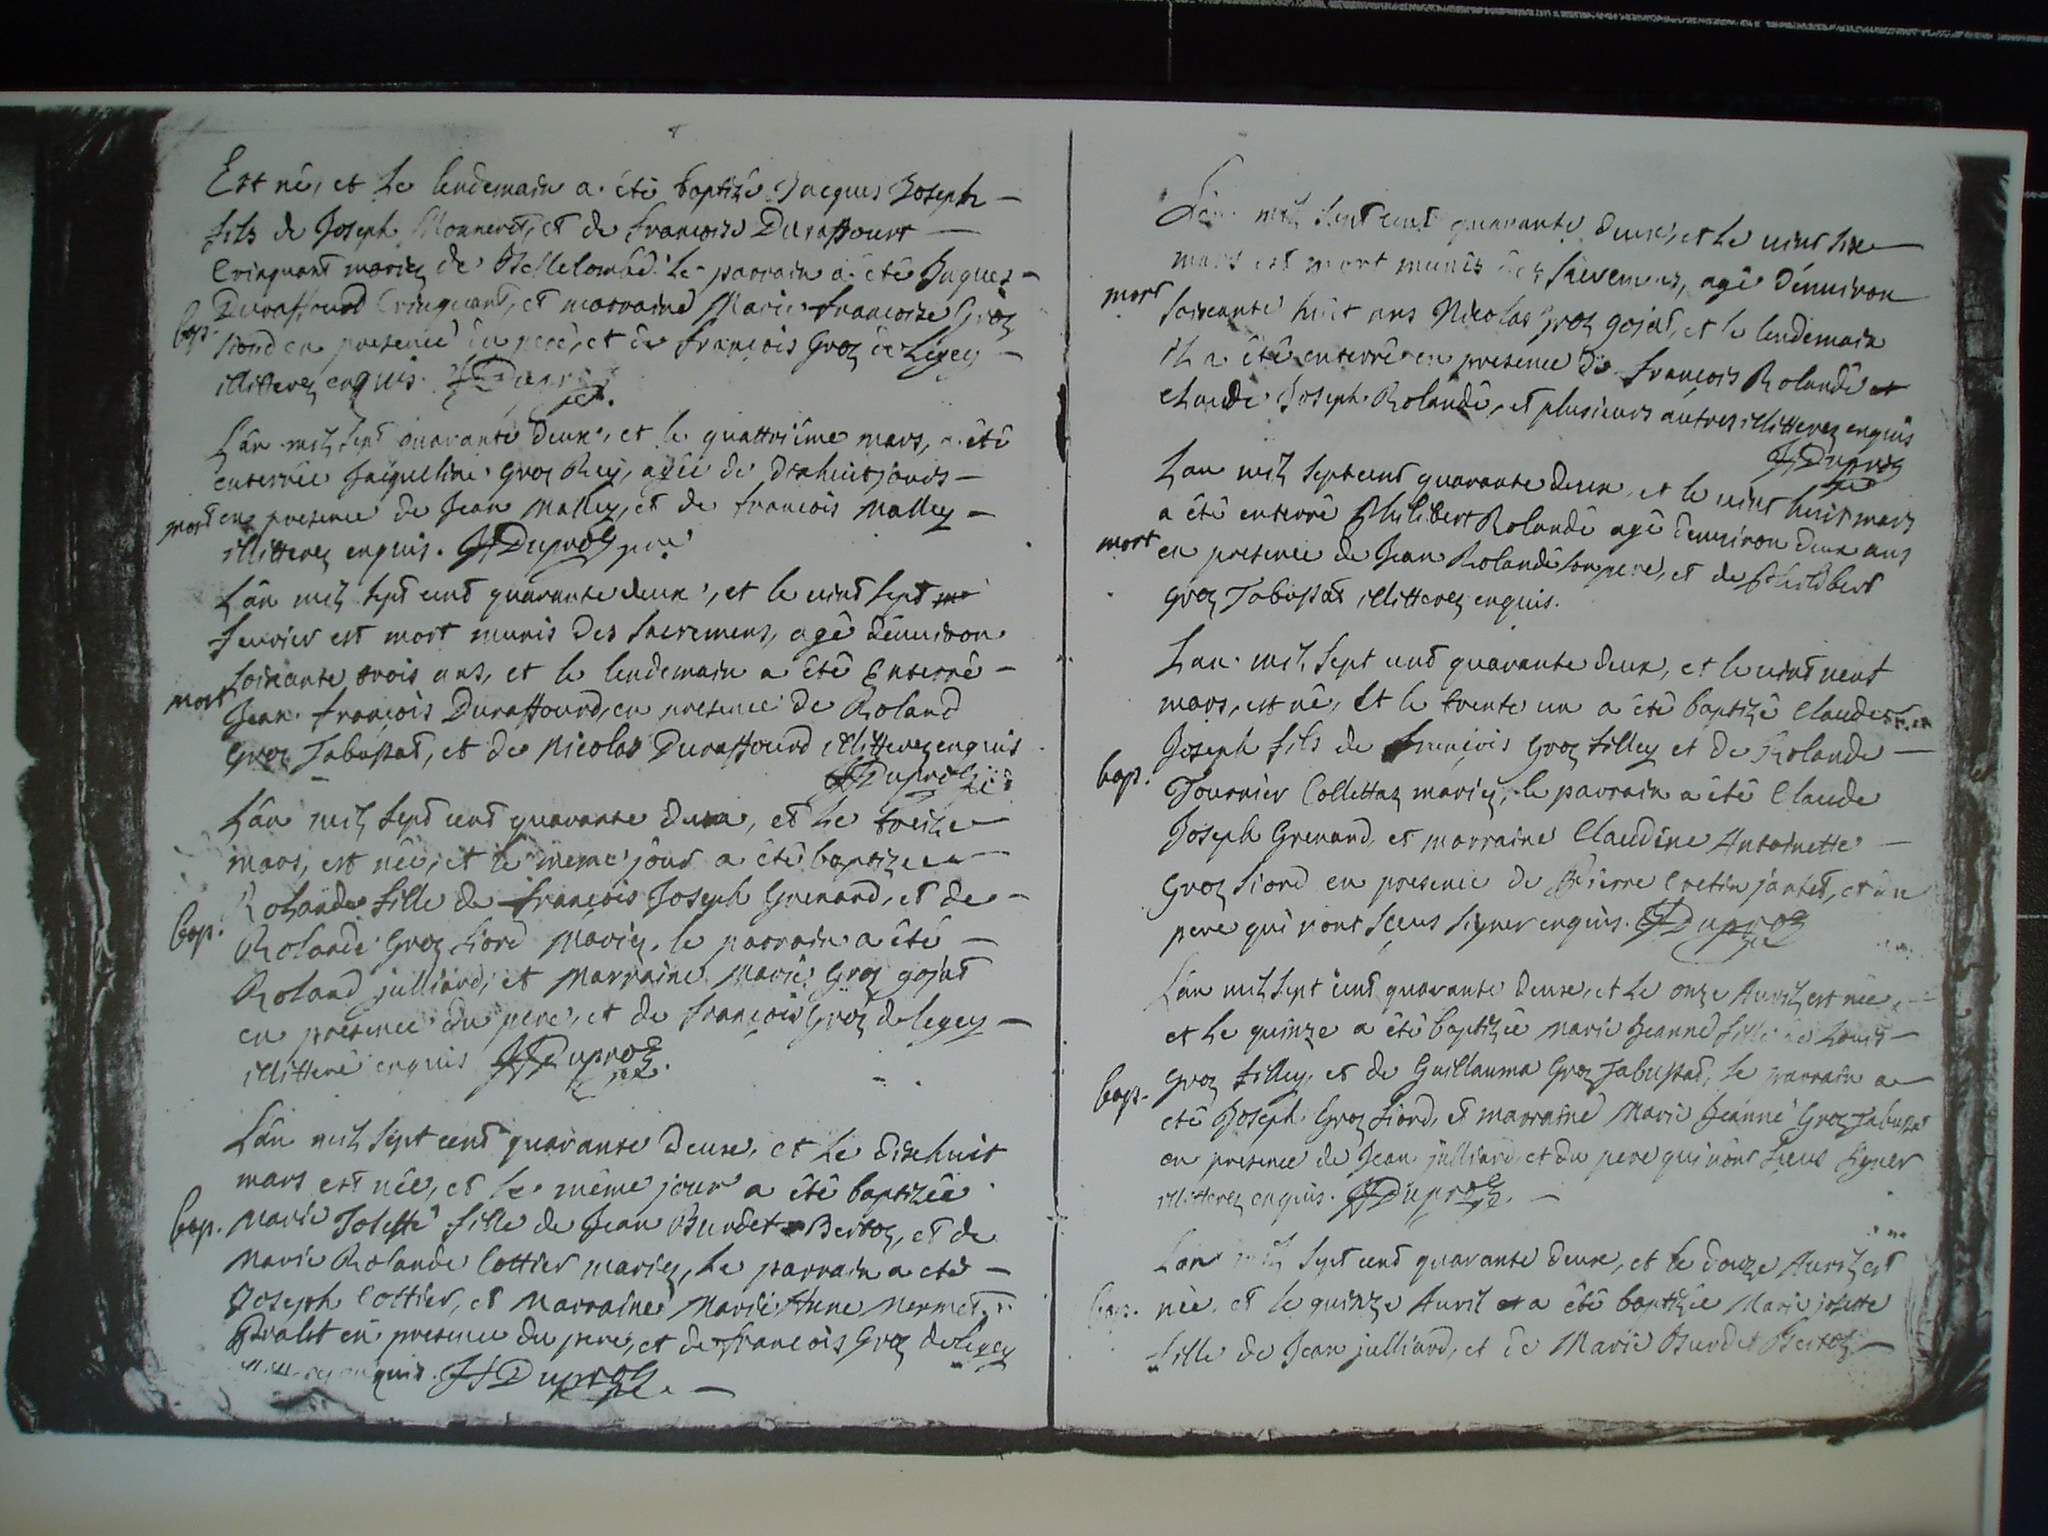 Est né, et le lendemain a été baptizé Jacques Joseph
fils de Joseph Monneret, et de françoise Duraffourt
Cringuant mariez de Bellecombe. le parrain a été Hugues
Duraffourd Cringuant, et marraine Marie françoise Groz
bap. siord en presence du pere, et de françois Groz de Legey
illitterez enquis. JfDuproz
L'ân mil sept quarante deux, et le quattriême mars, a été
enterrée Jaqueline Groz Rey, agée de dixhuit jours
mort en presence de Jean Malley, et de francois Malley
illitterez enquis. JfDuproz
L'ân mil sept cent quarante deux, et le vint sept
fevrier est mort munis des sacremens, agé d'environ
soixante trois ans, et le lendemain a été enterré
mort Jean françois Duraffourd, en presence de Roland
Groz Tabussat, et de Nicolas Duraffourd illitterez enquis
JfDuproz
L'ân mil sept cent quarante deux, et le treize
mars, est née, et le meme jour a été baptizée
Rolande fille de françois Joseph Grenard, et de
bap. Rolande Groz siord mariez, le parrain a été
Roland julliard, et Marraine Marie Groz gojat
en presence du pere, et de françois Groz de legey
illitteré enquis JfDuproz
L'ân mil sept cent quarante deux, et le dixhuit
mars est née, et le même jour a été baptizée
bap. Marie Josette fille de Jean Burdet Bertoz, et de
Marie Rolande Cottier mariez, le parrain a été
Joseph Cottier, et Marraine Marie Anne Mermet
Pralet en presence du pere, et de françois Groz de legey
enquis. JfDuproz
L'ân mil sept cent quarante deux, et le vint six
mars est mort munis des sacremens, agé d'environ
mort soixante huit ans Nicolas Groz gojat, et le lendemain
il a été enterré en presence de françois Rolandé et
Claude Joseph Rolandé, et plusieurs autres illitterez enquis
JfDuproz
L'an mil sept cent quarante deux, et le vint huit mars
a été enterré Philibert Rolandé agé d'environ deux ans
mort en presence de Jean Rolandé son pere, et de Philibert
Groz Tabussat illitterez enquis.
L'an mil sept cent quarante deux, et le vint neut
mars, est né, et le trente un a été baptizé Claude
Joseph fils de françois Groz filley et de Rolande
bap. Fournier Collettaz mariez, le parrain a été Claude
Joseph Grenard, et marraine Claudine Antoinette
Groz siord en presence de Pierre Cretin jantet, et du
pere qui n'ont sceus signer enquis. JfDuproz
L'ân mil sept cent quarante deux, et le onze Avril est née,
et le quinze a été baptizée Marie Jeanne fille de Louis
bap. Groz filley, et de Guillauma Groz Tabussat, le parrain a
été Joseph Groz siord, et marraine Marie Jeanne Groz Tabussat
en presence de Jean julliard et du pere qui n'ont sceus signer
illitterez enquis. JfDuproz
L'an mil sept cent quarante deux, et le douze Avril est
bap. née, et le quinze Avril a été baptizée Marie josette
fille de Jean julliard, et de Marie Burdet Bertoz